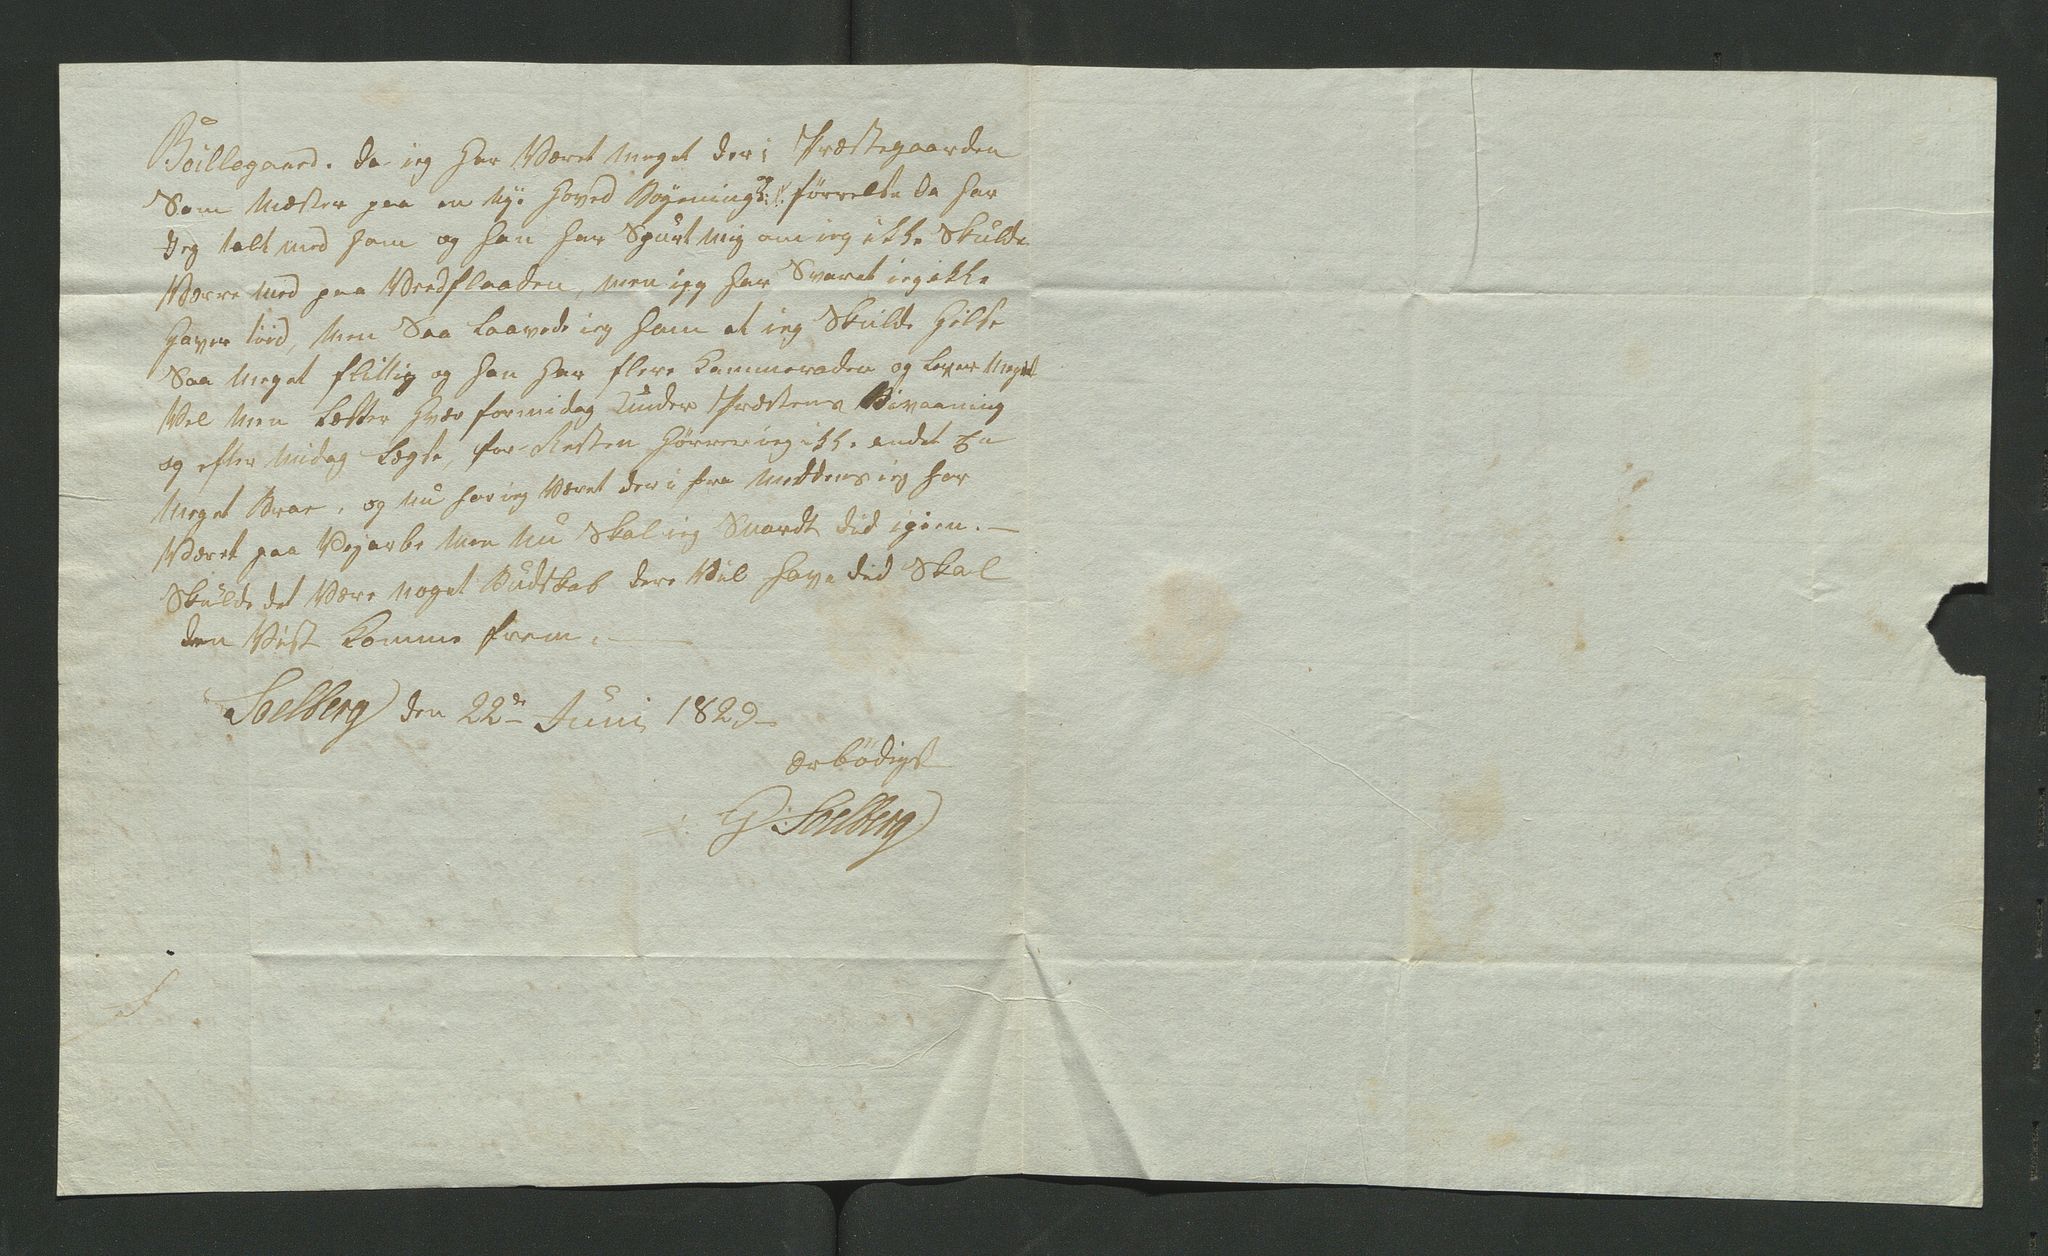 Böillegaard. da ieg har Været meget der i Præstegaarden
Som Mæster paa en Nye Hoved Bögning förrelse da har
Jeg talt med ham og han har Spurt Mig om ieg ikke Skulde
Værre Med paa Vedflaaden, men ieg har Svaret ieg ikke
Haver tiid, Men Saa Laavede ieg ham at ieg Skulde Hilse
Saa Meget flittig og han har flere Kammerader og Lever Meget
Vel Men Læsser Hvær formidag Under Præstens Bivaaning
og efter Midag Legse, for Resten Hörrer ieg ikke andet En
Meget Bra, og nu har ieg Været der i fra Meddens ieg har
Været paa Vejarbe Men Nu Skal ieg Snardt did igien. —
Skulde det Være noget Budskab dere Vil have did Skal
den Vist Komme frem. —
Soelberg den 22de Juni 1829
ærbödigst
G: Soelberg